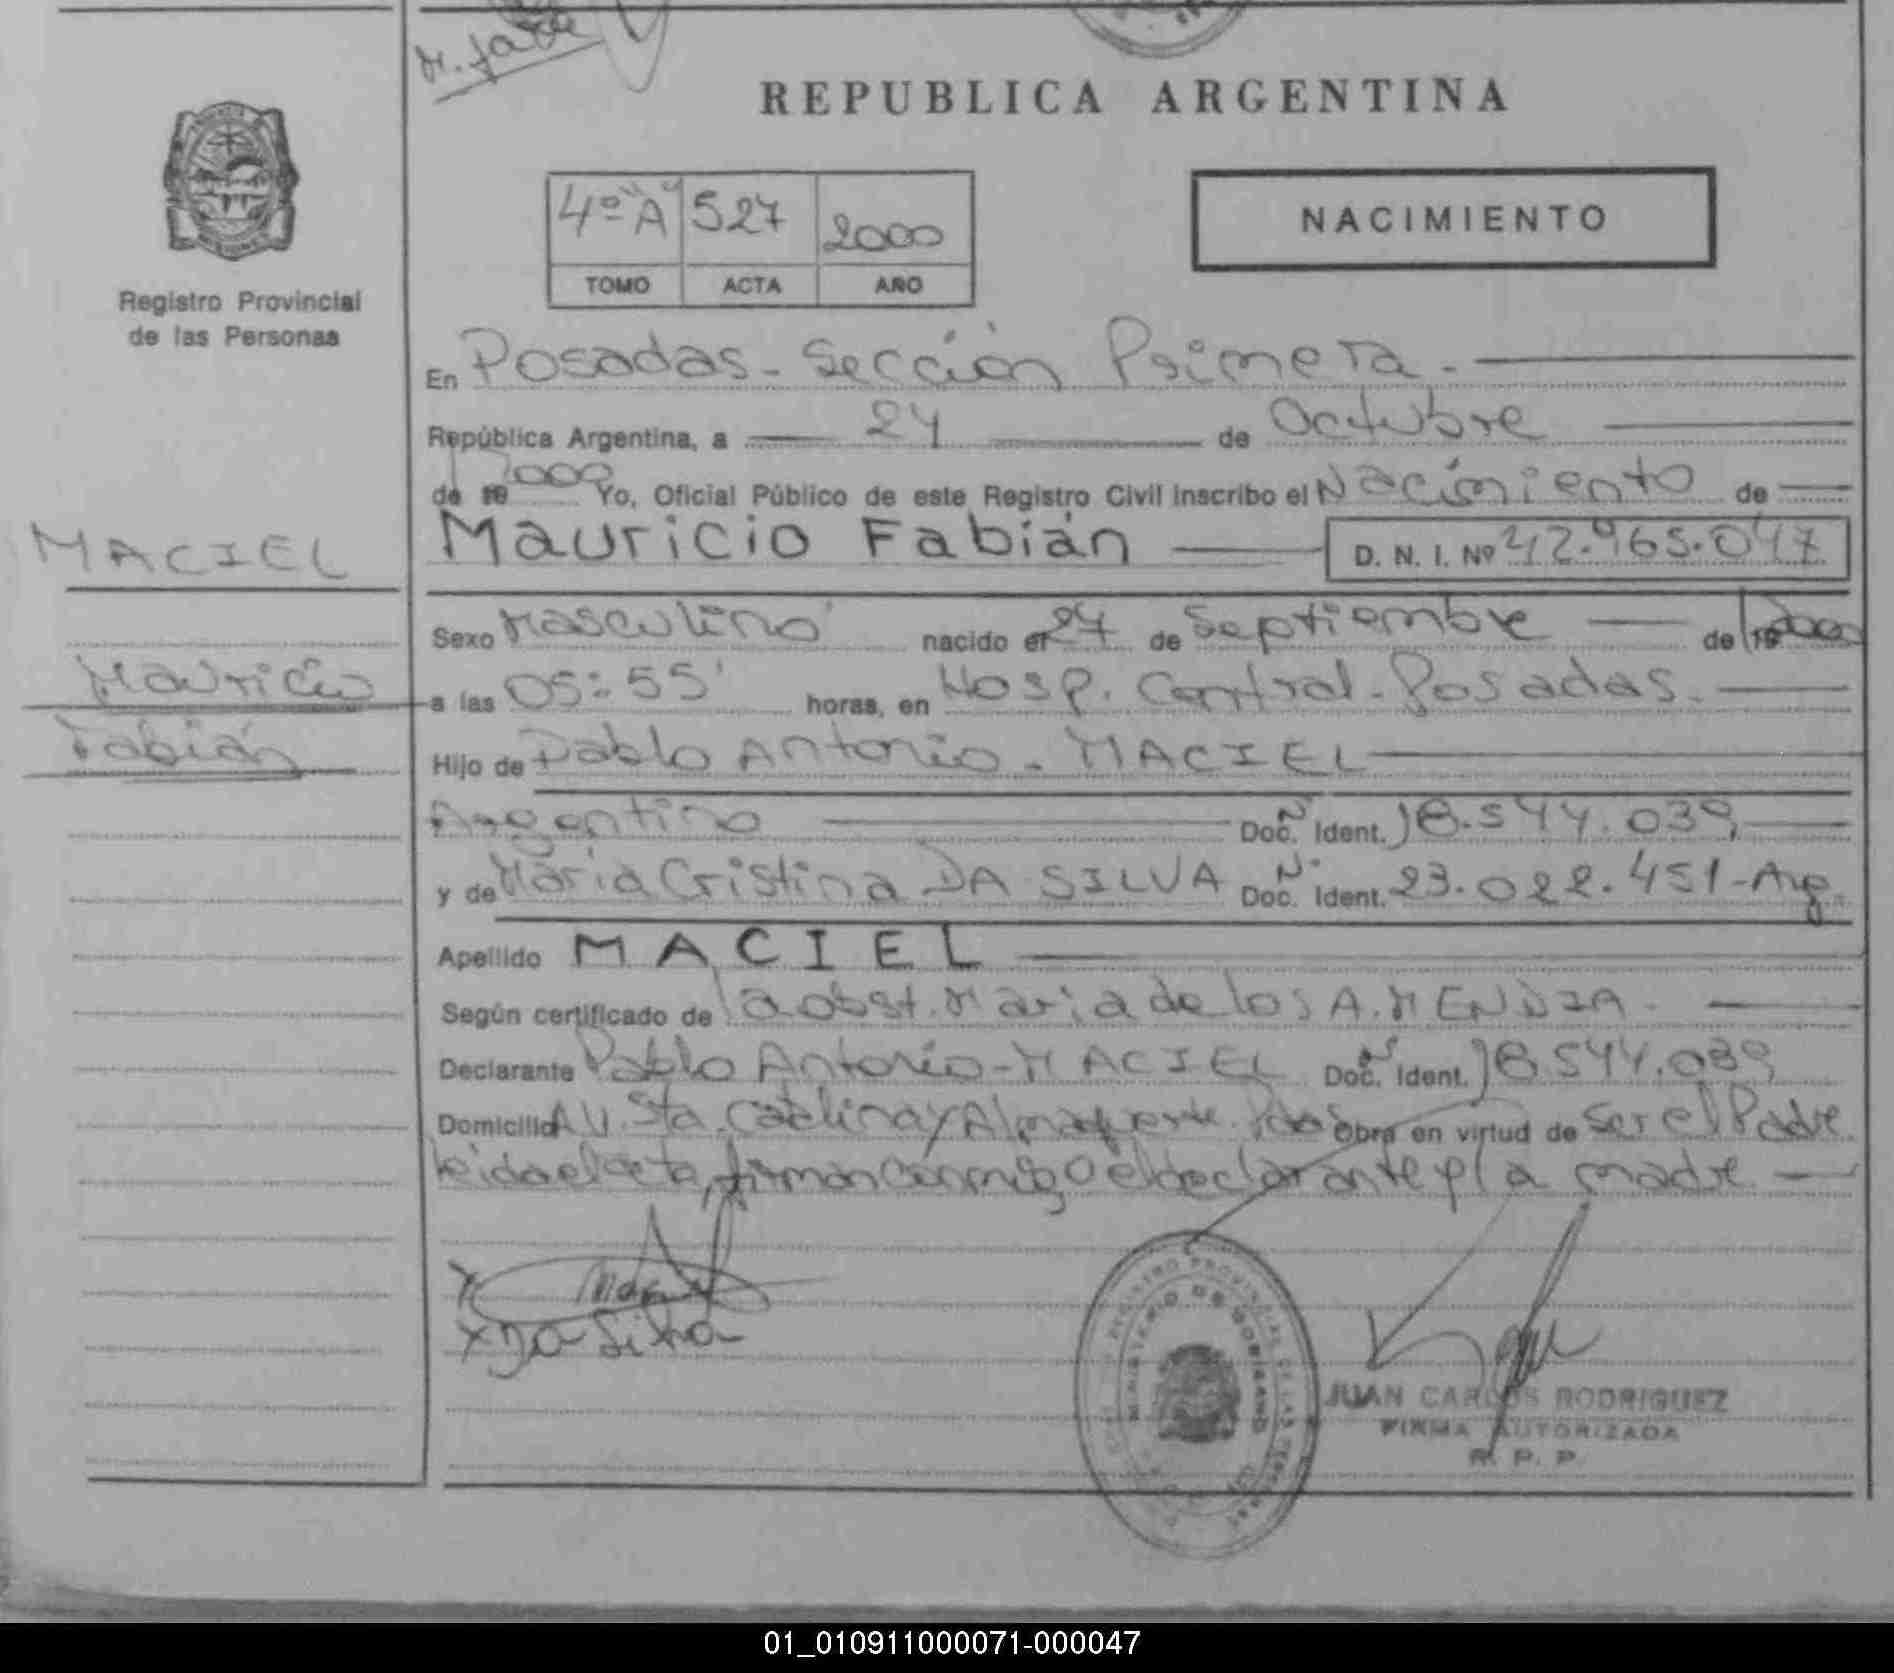 REPUBLICA ARGENTINA
4º "A" 527 2000
TOMO ACTA AÑO
NACIMIENTO
Registro Provincial
de las Personas
En Posadas - Sección Primera.
República Argentina, a 24 de Octubre
de 19 2000 Yo, Oficial Público de este Registro Civil inscribo el Nacimiento de
MACIEL
Mauricio Fabián
D. N. I. Nº 42.965.047
Sexo Masculino nacido el 27 de Septiembre de 19 2000
Mauricio
a las 05:55' horas, en Hosp. Central - Posadas.
Fabián
Hijo de Pablo Antonio - MACIEL
Argentino Doc. Ident. Nº 18.544.039
y de María Cristina DA SILVA Doc. Ident. Nº 23.022.451 - Arg.
Apellido MACIEL
Según certificado de la obst. Maria de los A. MENDIA.
Declarante Pablo Antonio - MACIEL Doc. Ident. Nº 18.544.039
Domicilio AV. Sta. Catalina y Almafuerte. Pdas Obra en virtud de ser el Padre
leida el acta, firman conmigo el declarante y la madre
x Da Silva
REGISTRO PROVINCIAL DE LAS PERSONAS
MINISTERIO DE GOBIERNO
JUAN CARLOS RODRIGUEZ
FIRMA AUTORIZADA
R. P. P.
01_010911000071-000047